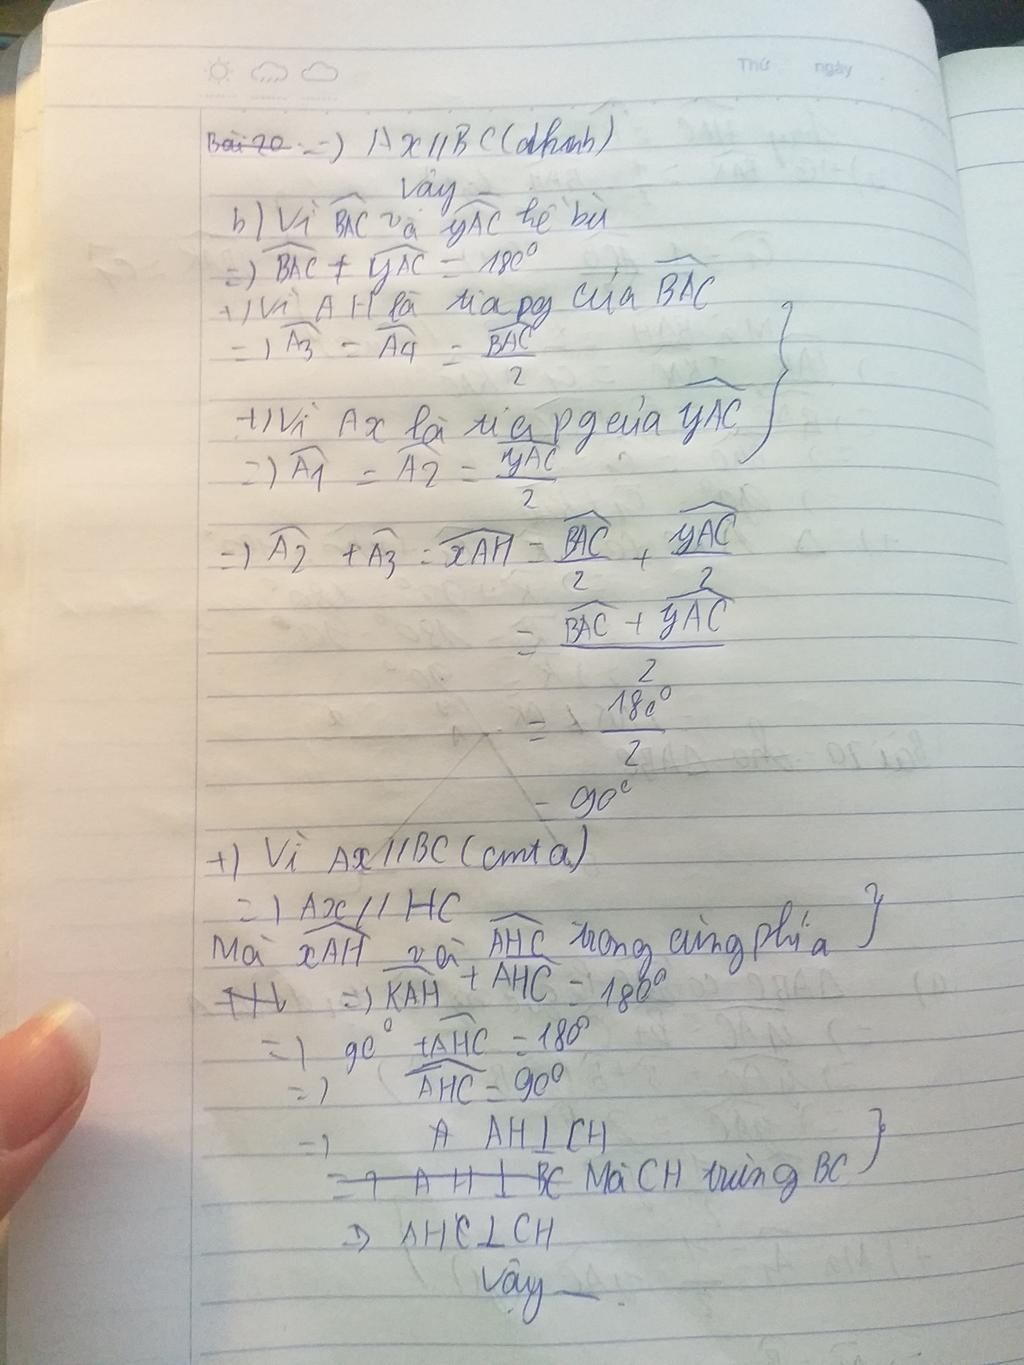 Thứ ngày
Bài 20 =) Ax//BC (dhnb)
Vậy _
b) Vì BAC và yAC kề bù
=) BAC + yAC = 180⁰
+) Vì AH là tia pg của BAC
=) A3 = A4 = BAC/2
+) Vì Ax là tia pg của yAC
=) A1 = A2 = yAC/2
=) A2 + A3 = xAH = BAC/2 + yAC/2
= BAC + yAC/2
= 180⁰/2
= 90⁰
+) Vì Ax//BC (cmt a)
=) Ax // HC
Mà xAH và AHC trong cùng phía
=) KAH + AHC = 180⁰
=) 90⁰ + AHC = 180⁰
=) AHC = 90⁰
=) A AH⊥CH
=) AH ⊥ BC Mà CH trùng BC
=> AHC⊥CH
Vậy _